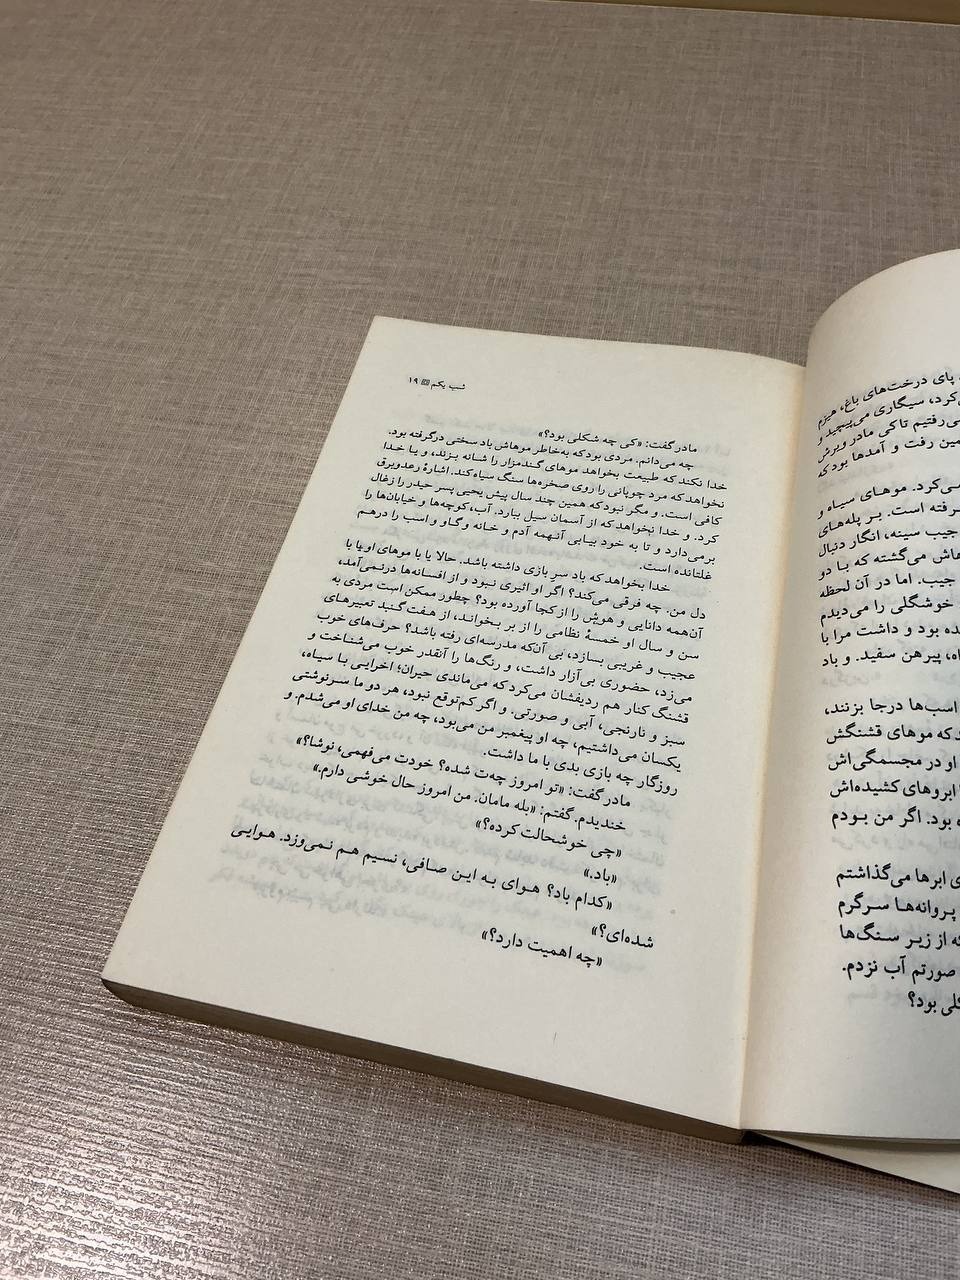 پای درخت‌های باغ، هیزم
می‌کرد، سیگاری می‌پیچید و
می‌رفتیم تا کی مادر ویرش
همین رفت و آمدها بود که
می‌کرد. موهای سیاه و
گرفته است. بر پله‌های
جیب سینه، انگار دنبال
می‌گشته که با دو
جیب. اما در آن لحظه
خوشگلی را می‌دیدم
بود و داشت مرا با
پیرهن سفید. و باد
اسب‌ها درجا بزنند،
که موهای قشنگش
او در مجسمگی‌اش
ابروهای کشیده‌اش
بود. اگر من بودم
ابرها می‌گذاشتم
پروانه‌ها سرگرم
که از زیر سنگ‌ها
صورتم آب نزدم.
بود؟
شب یکم ۱۹
مادر گفت: «کی چه شکلی بود؟»
چه می‌دانم. مردی بود که به‌خاطر موهاش باد سختی درگرفته بود.
خدا نکند که طبیعت بخواهد موهای گندمزار را شانه بزند، و یا خدا
نخواهد که مرد چوپانی را روی صخره‌ها سنگ سیاه کند. اشارهٔ رعدوبرق
کافی است. و مگر نبود که همین چند سال پیش یحیی پسر حیدر را زغال
کرد. و خدا نخواهد که از آسمان سیل ببارد. آب، کوچه‌ها و خیابان‌ها را
برمی‌دارد و تا به خود بیابی آنهمه آدم و خانه و گاو و اسب را درهم
غلتانده است.
خدا بخواهد که باد سر بازی داشته باشد. حالا یا با موهای او یا با
دل من. چه فرقی می‌کند؟ اگر او اثیری نبود و از افسانه‌ها درنمی‌آمد،
آن‌همه دانایی و هوش را از کجا آورده بود؟ چطور ممکن است مردی به
سن و سال او خمسهٔ نظامی را از بر بخواند، از هفت‌گنبد تعبیرهای
عجیب و غریبی بسازد، بی آن‌که مدرسه‌ای رفته باشد؟ حرف‌های خوب
می‌زد، حضوری بی‌آزار داشت، و رنگ‌ها را آنقدر خوب می‌شناخت و
قشنگ کنار هم ردیفشان می‌کرد که می‌ماندی حیران؛ اخرایی با سیاه،
سبز و نارنجی، آبی و صورتی. و اگر کم‌توقع نبود، هر دو ما سرنوشتی
یکسان می‌داشتیم، چه او پیغمبر من می‌بود، چه من خدای او می‌شدم. و
روزگار چه بازی بدی با ما داشت.
مادر گفت: «تو امروز چه‌ت شده؟ خودت می‌فهمی، نوشا؟»
خندیدم. گفتم: «بله مامان. من امروز حال خوشی دارم.»
«چی خوشحالت کرده؟»
«باد.»
«کدام باد؟ هوای به این صافی، نسیم هم نمی‌وزد. هوایی
شده‌ای؟»
«چه اهمیت دارد؟»